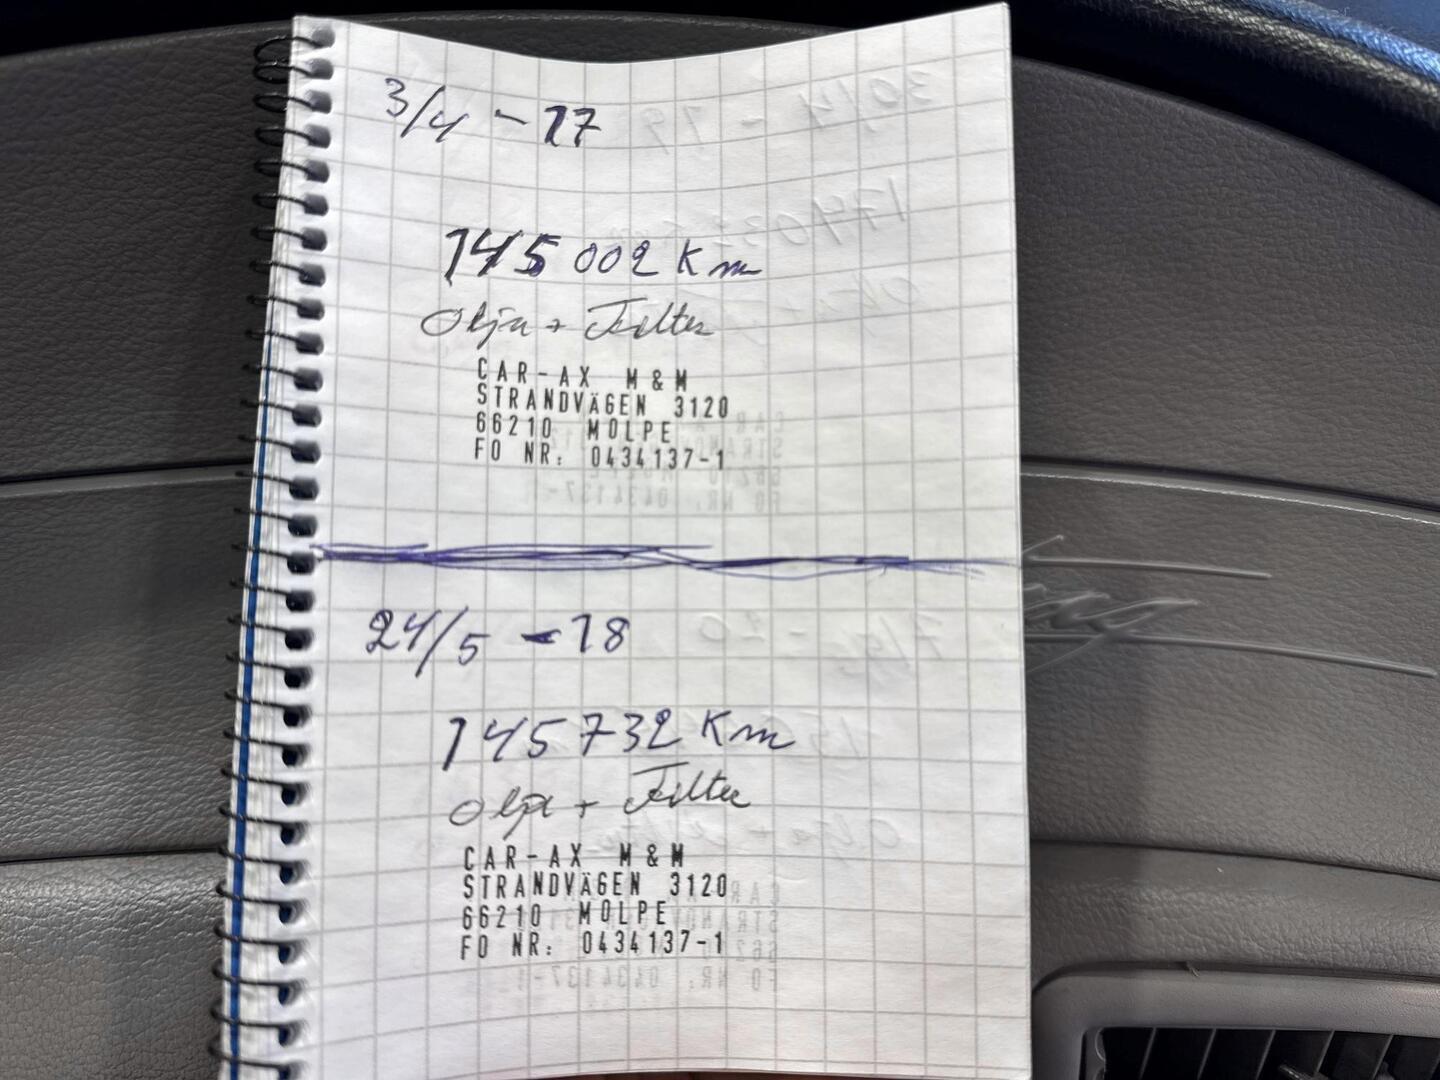 3/4 - 17
145 002 Km
Olja + Filter
CAR-AX M & M
STRANDVÄGEN 3120
66210 MOLPE
FO NR: 0434137-1
24/5 - 18
145 732 Km
Olja + Filter
CAR-AX M & M
STRANDVÄGEN 3120
66210 MOLPE
FO NR: 0434137-1